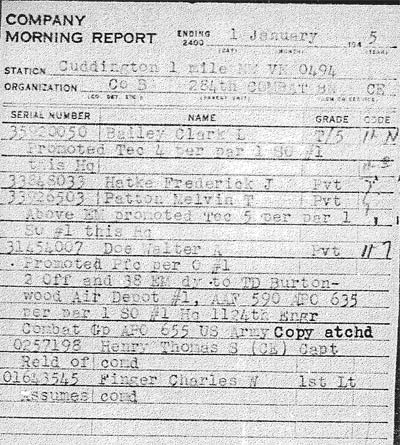 COMPANY
MORNING REPORT ENDING 2400 1 January 194 5
STATION Cuddington 1 mile NW VM 0494
ORGANIZATION Co B 284th COMBAT BN CE
SERIAL NUMBER NAME GRADE CODE
35920050 Bailey Clark L T/5
Promoted Tec 4 per par 1 SO #1
this Hq
33848033 Hatke Frederick J Pvt
33926503 Patton Melvin T Pvt
Above EM promoted Tec 5 per par 1
SO #1 this Hq
31454007 Doe Walter A Pvt
Promoted Pfc per O #1
2 Off and 38 EM dy to TD Burton-
wood Air Depot #1, AAF 590 APO 635
per par 1 SO #1 Hq 1124th Engr
Combat Gp APO 655 US Army Copy atchd
0257198 Henry Thomas S (CE) Capt
Reld of comd
01643545 Finger Charles W 1st Lt
Assumes comd